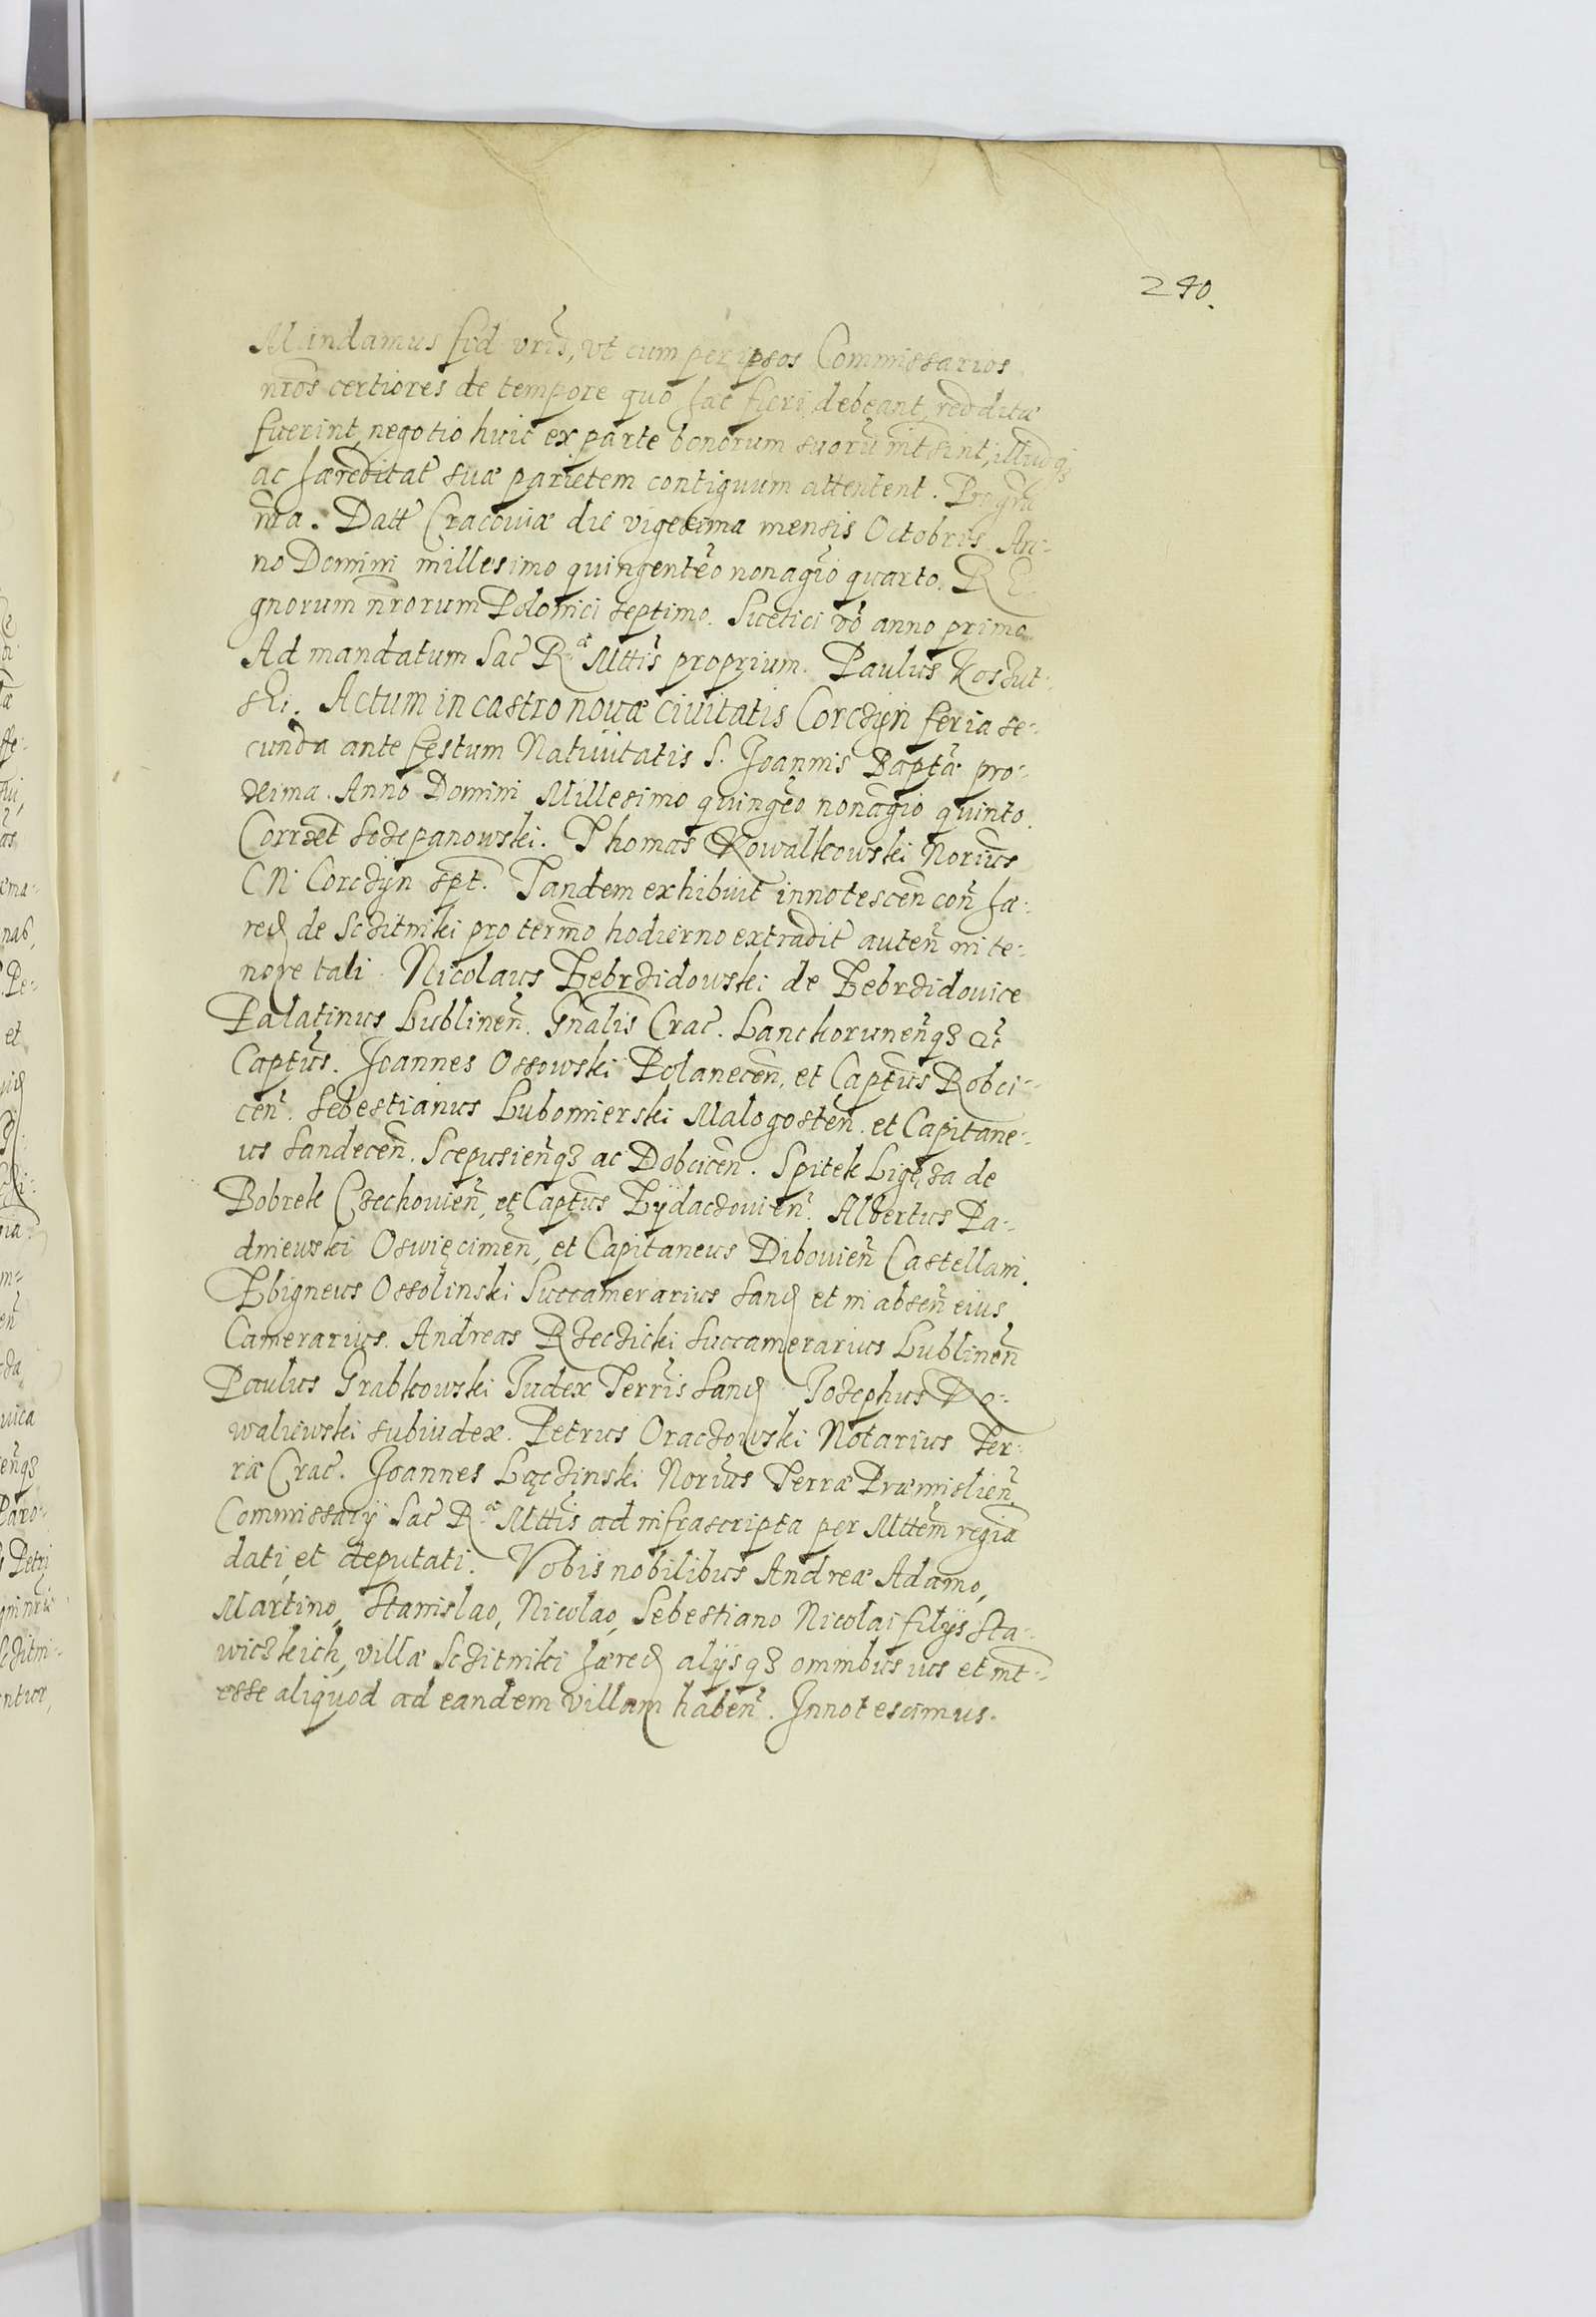 240.
Mandamus fid vris, ut cum per ipsos Commissarios
nros certiores de tempore quo hac fieri debeant, redditæ
fuerint, negotio huic ex parte bonorum suorū intsint, illudqз
ac hæreditat suæ parietem contiguum attentent. Pro gra
nra. Datt Cracoviæ die vigesima mensis Octobris. An-
no Domini millesimo quingenteo nonagio quarto. RE
gnorum nrorum Polonici septimo. Suetici vo anno primo
Ad mandatum Sac Rᵃ Mttis proprium. Paulus Koszut-
ski. Actum in castro novæ civitatis Corczÿn feria se-
cunda ante festum Nativitatis S. Joannis Bapta pro-
xima. Anno Domini Millesimo quingeo nonagio quinto.
Corrxt Sczepanowski. Thomas Kowalkowski Norius
CN Corczÿn spt. Tandem exhibuit innotescen con hæ-
red de Sczitniki pro termo hodierno extradit auten in te-
nore tali. Nicolaus Zebrzidowski de Zebrzidovice
Palatinus Lublinen. Gnalis Crac. Lanckorunenqз etc
Captus. Joannes Ossowski Polanecen, et Captus Robci-
cen. Sebestianus Lubomierski Malogosten. et Capitane-
us Sandecen. Scepusienqз ac Dobcicen. Spitek Ligęza de
Bobrek Czechovien, et Captus Zÿdaczovien. Albertus Pa-
dniewski Oswięcimen, et Capitaneus Dibovien Castellani.
Zbigneus Ossolinski Succamerarius Sand et in absen eius
Camerarius. Andreas Rzeczicki Succamerarius Lublinen
Paulus Grabkowski Judex Terris Sand Josephus Ko-
waliewski subiudex. Petrus Oraczowski Notarius Ter-
ræ Crac. Joannes Lączinski Norius Terræ Præmislien.
Commissarÿ Sac Rᵃ Mttis ad infrascripta per Mttem regia
dati, et deputati. Vobis nobilibus Andreæ Adamo,
Martino, Stanislao, Nicolao, Sebestiano Nicolai filÿs Sta-
wiczkich, villæ Sczitniki hæred alÿsqз omnibus ius et int-
esse aliquod ad eandem villam haben. Innotescimus.